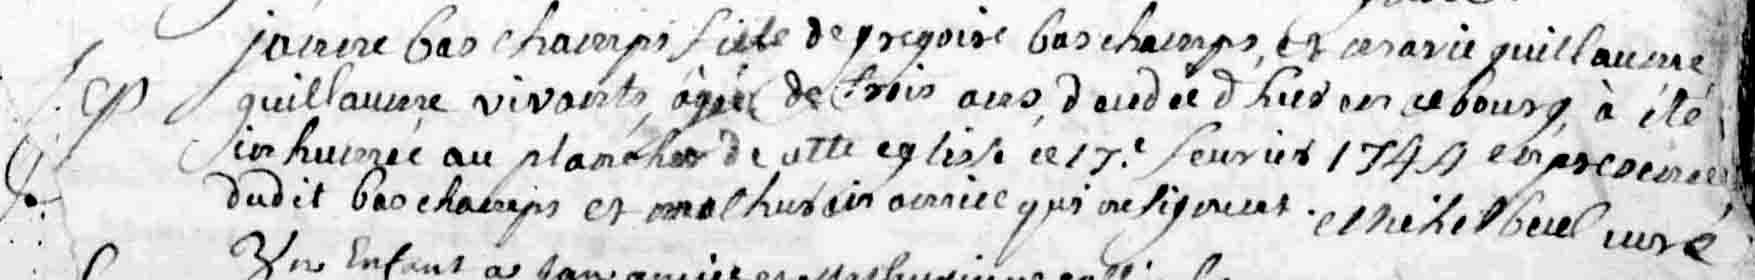 janne baschamps fille de gregoire baschamps, et marie guillaume
guillaume vivants, agée de trois ans, décédée d'hier en ce bourg, à été
inhumée au plancher de cette eglise ce 17.e feurier 1744 en presence
dudit baschamps et mathurin annice qui ne signent. Michel curé
Un Enfant